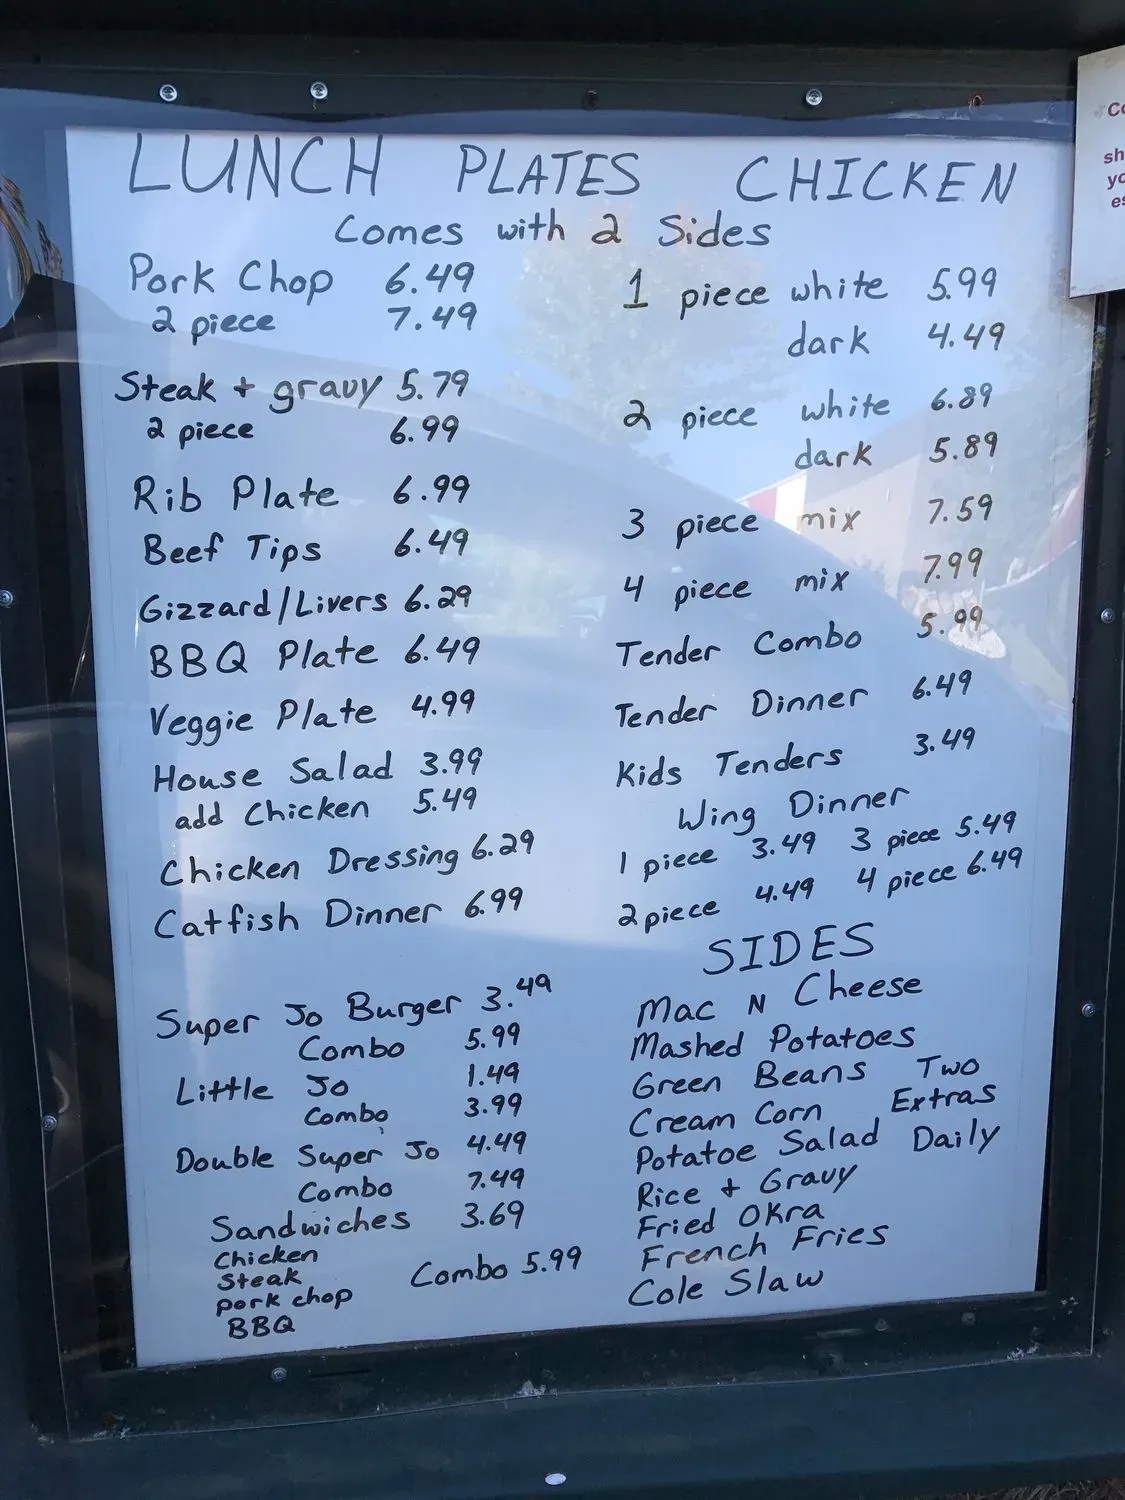 LUNCH PLATES CHICKEN
Comes with 2 Sides
Pork Chop 6.49
2 piece 7.49
Steak + gravy 5.79
2 piece 6.99
Rib Plate 6.99
Beef Tips 6.49
Gizzard/Livers 6.29
BBQ Plate 6.49
Veggie Plate 4.99
House Salad 3.99
add Chicken 5.49
Chicken Dressing 6.29
Catfish Dinner 6.99
Super Jo Burger 3.49
Combo 5.99
Little Jo 1.49
Combo 3.99
Double Super Jo 4.49
Combo 7.49
Sandwiches 3.69
Chicken
Steak
Combo 5.99
pork chop
BBQ
1 piece white 5.99
dark 4.49
2 piece white 6.89
dark 5.89
3 piece mix 7.59
4 piece mix 7.99
Tender Combo 5.99
Tender Dinner 6.49
Kids Tenders 3.49
Wing Dinner
1 piece 3.49 3 piece 5.49
2 piece 4.49 4 piece 6.49
SIDES
Mac N Cheese
Mashed Potatoes
Green Beans
Cream Corn
Potatoe Salad
Rice + Gravy
Fried Okra
French Fries
Cole Slaw
Two
Extras
Daily